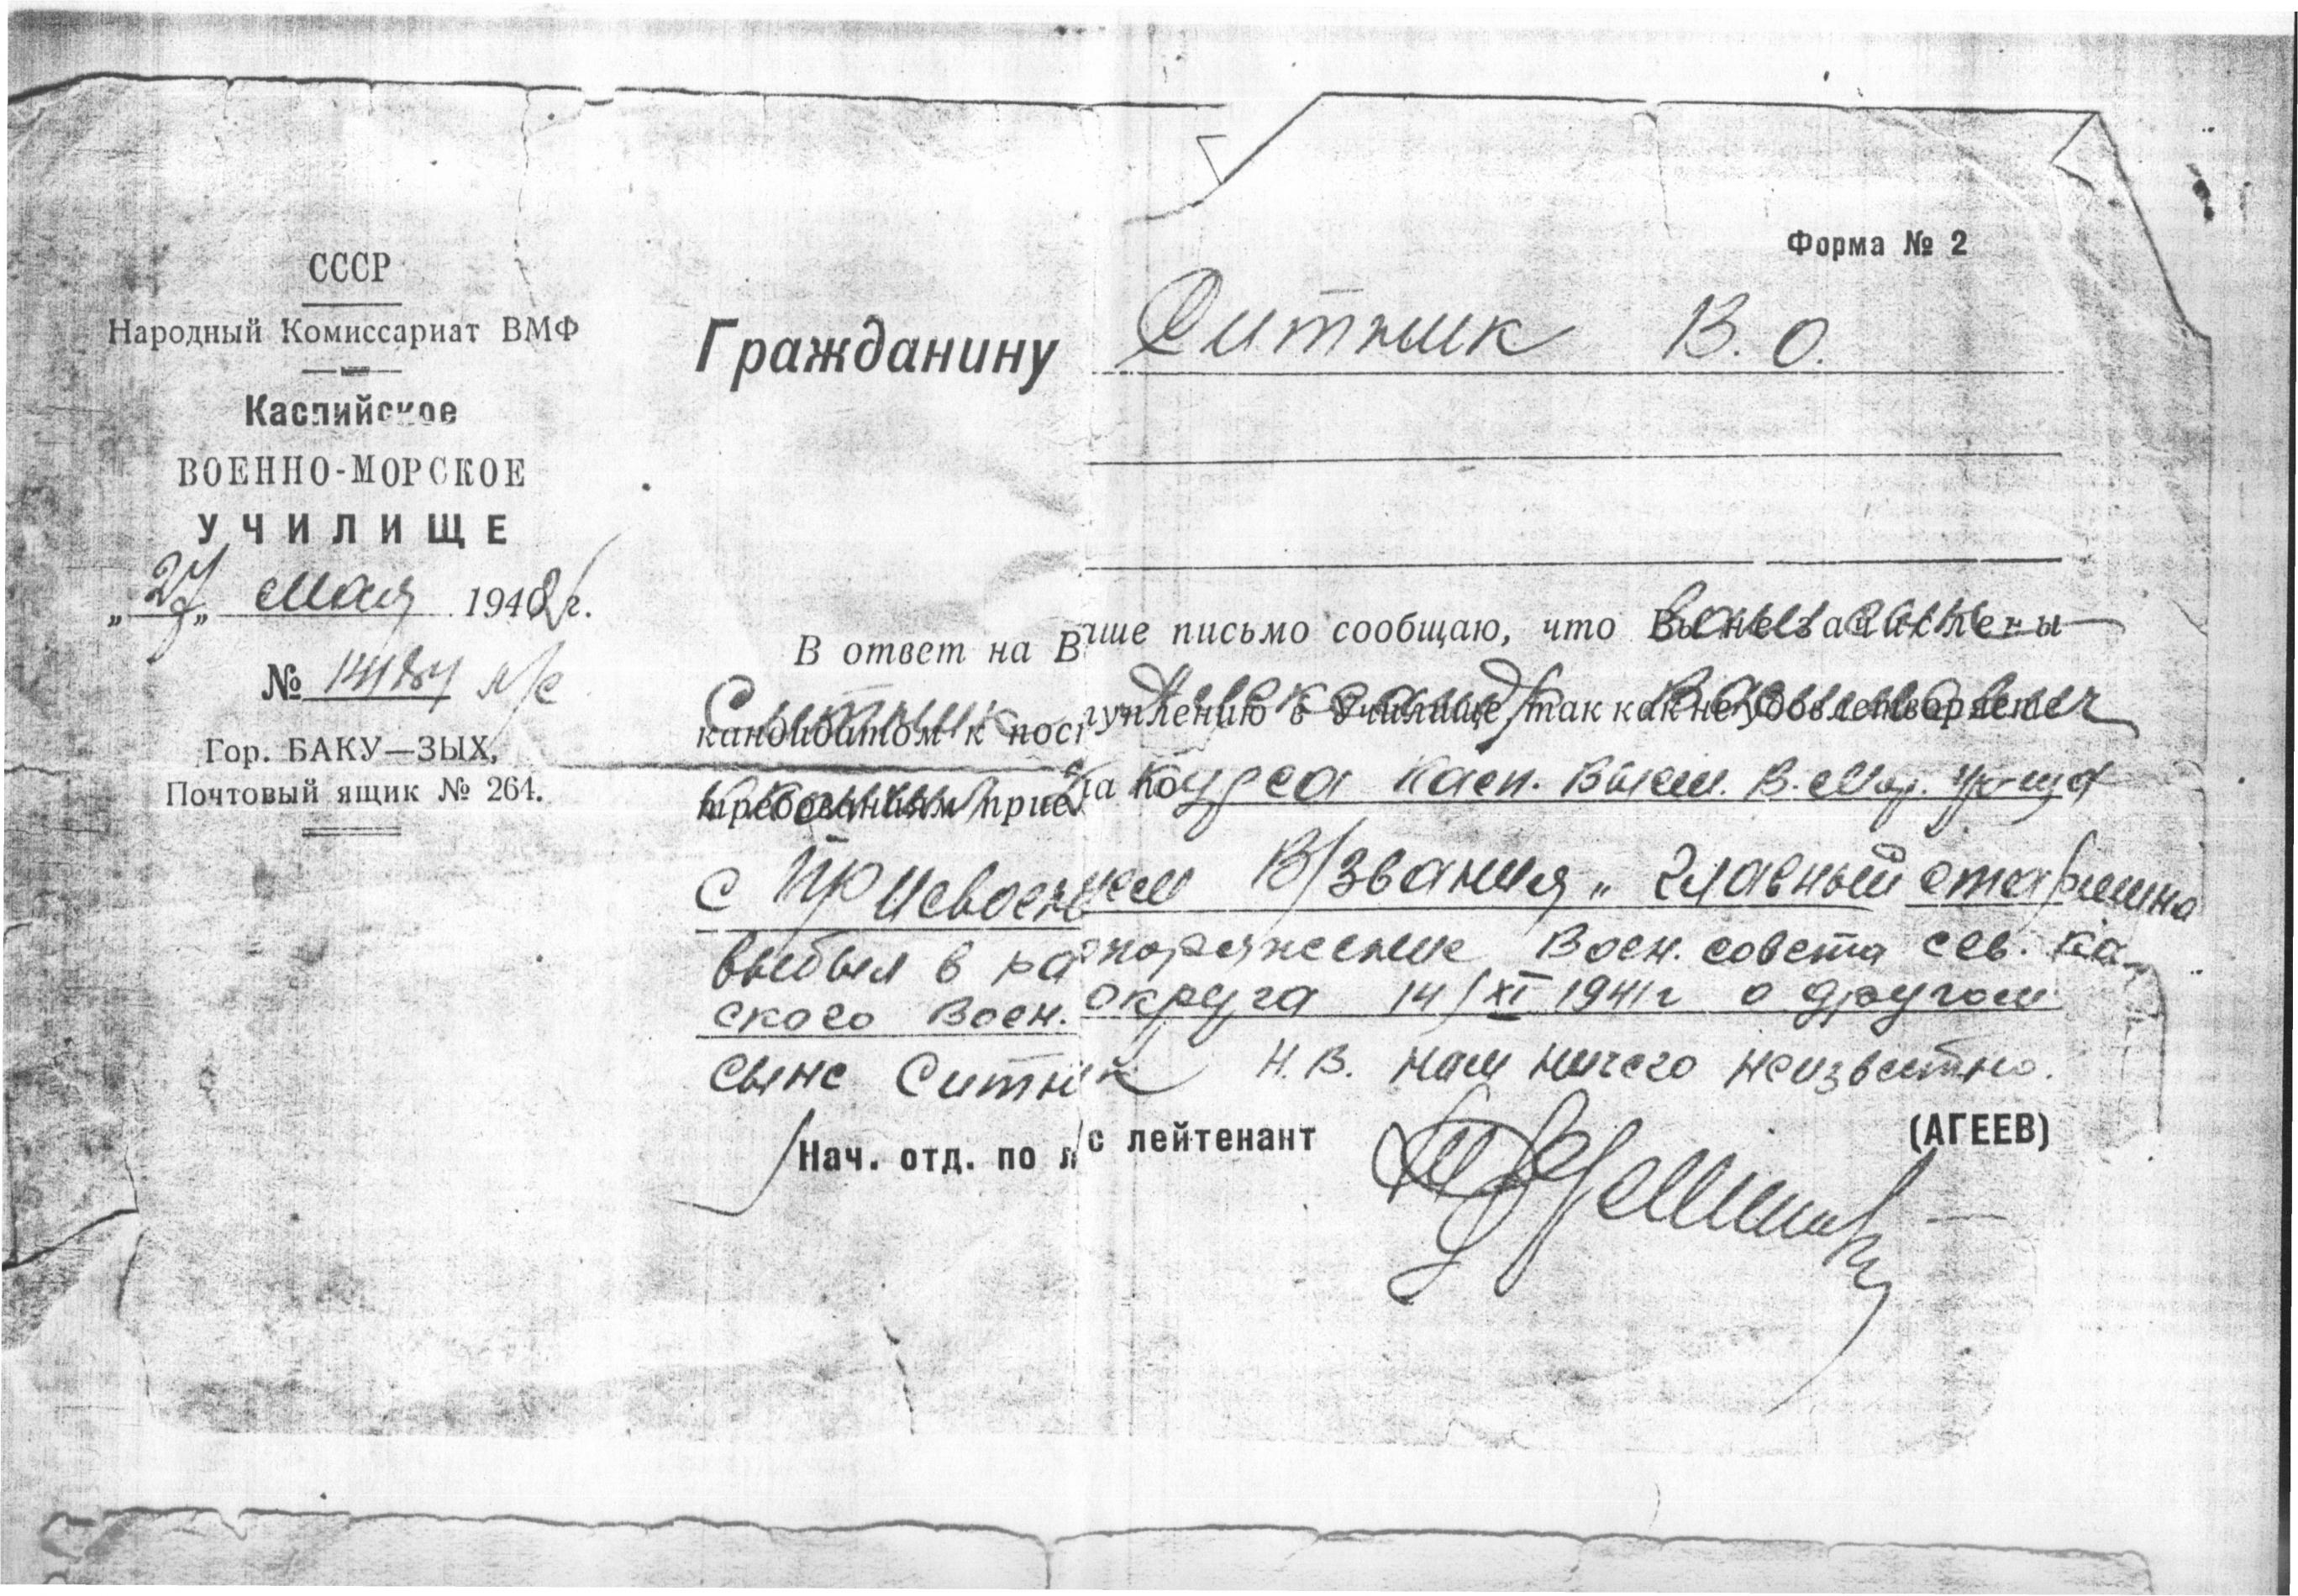 Форма № 2
СССР
Народный Комиссариат ВМФ
Каспийское
ВОЕННО-МОРСКОЕ
УЧИЛИЩЕ
„27„ мая 1942 г.
№
Гор. БАКУ—ЗЫХ,
Почтовый ящик № 264.
Гражданину Ситник В. О.
В ответ на Ваше письмо сообщаю, что Вы не зачислены
Ситник Александр
кандидатом к поступлению в Училище, так как не удовлетворяете
требованиям прие
курса Касп. Высш. В. Мор. Уч-ща
с присвоением В/звания „главный старшина
выбыл в распоряжение Воен. совета сев. ка-
ского Воен. округа 14/XI 1941г о другом
сыне Ситник Н. В. нам ничего неизвестно.
Нач. отд. по л/с лейтенант (АГЕЕВ)